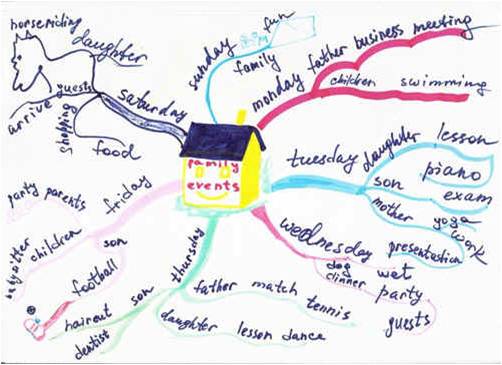 family
events
sunday
family
fun
monday
father business meeting
children swimming
tuesday
daughter lesson
piano
son exam
mother yoga
work
presentation
wednesday
dog vet
dinner party
guests
thursday
father match tennis
daughter lesson dance
son
haircut
dentist
friday
party parents
children
babysitter
son
football
saturday
daughter
horseriding
guests
arrive
shopping
food